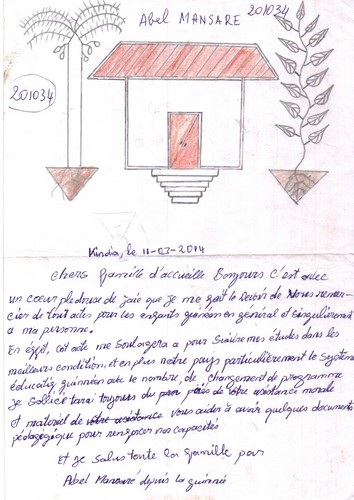 Abel MANSARE
201034
201034
Kindia, le 11-03-2014
chers famille d'accueille Bonjours c'est avec
un coeur pledeuse de joie que je me fait le devoir de Nous remer-
cier de tout actes pour les enfants guinéen en général et singulièrement
a ma personne.
En effet, cet acte me Soulagera a pour Suivre mes études dans les
meilleurs condition, et en plus notre pays particulièrement le Système
éducatif guinéen avec le nombre, de changement de programme
Je sollicitarai toujours du près de votre assistance morale
et materiel de votre assistance Vous aider à avoir quelques documents
pédagogique pour renforcer nos capacités
Et je salus toute la famille par
Abel Mansaré depuis la guinée